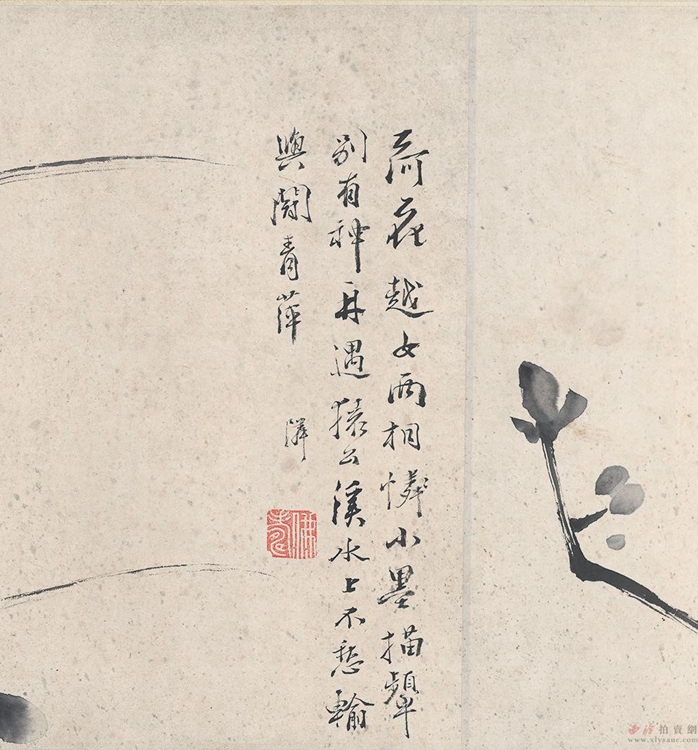 荷花越女两相憐小墨描顰
別有神再遇猿公溪水上不愁輸
與鬪青萍
佛壽
西泠拍賣網
www.xlysauc.com